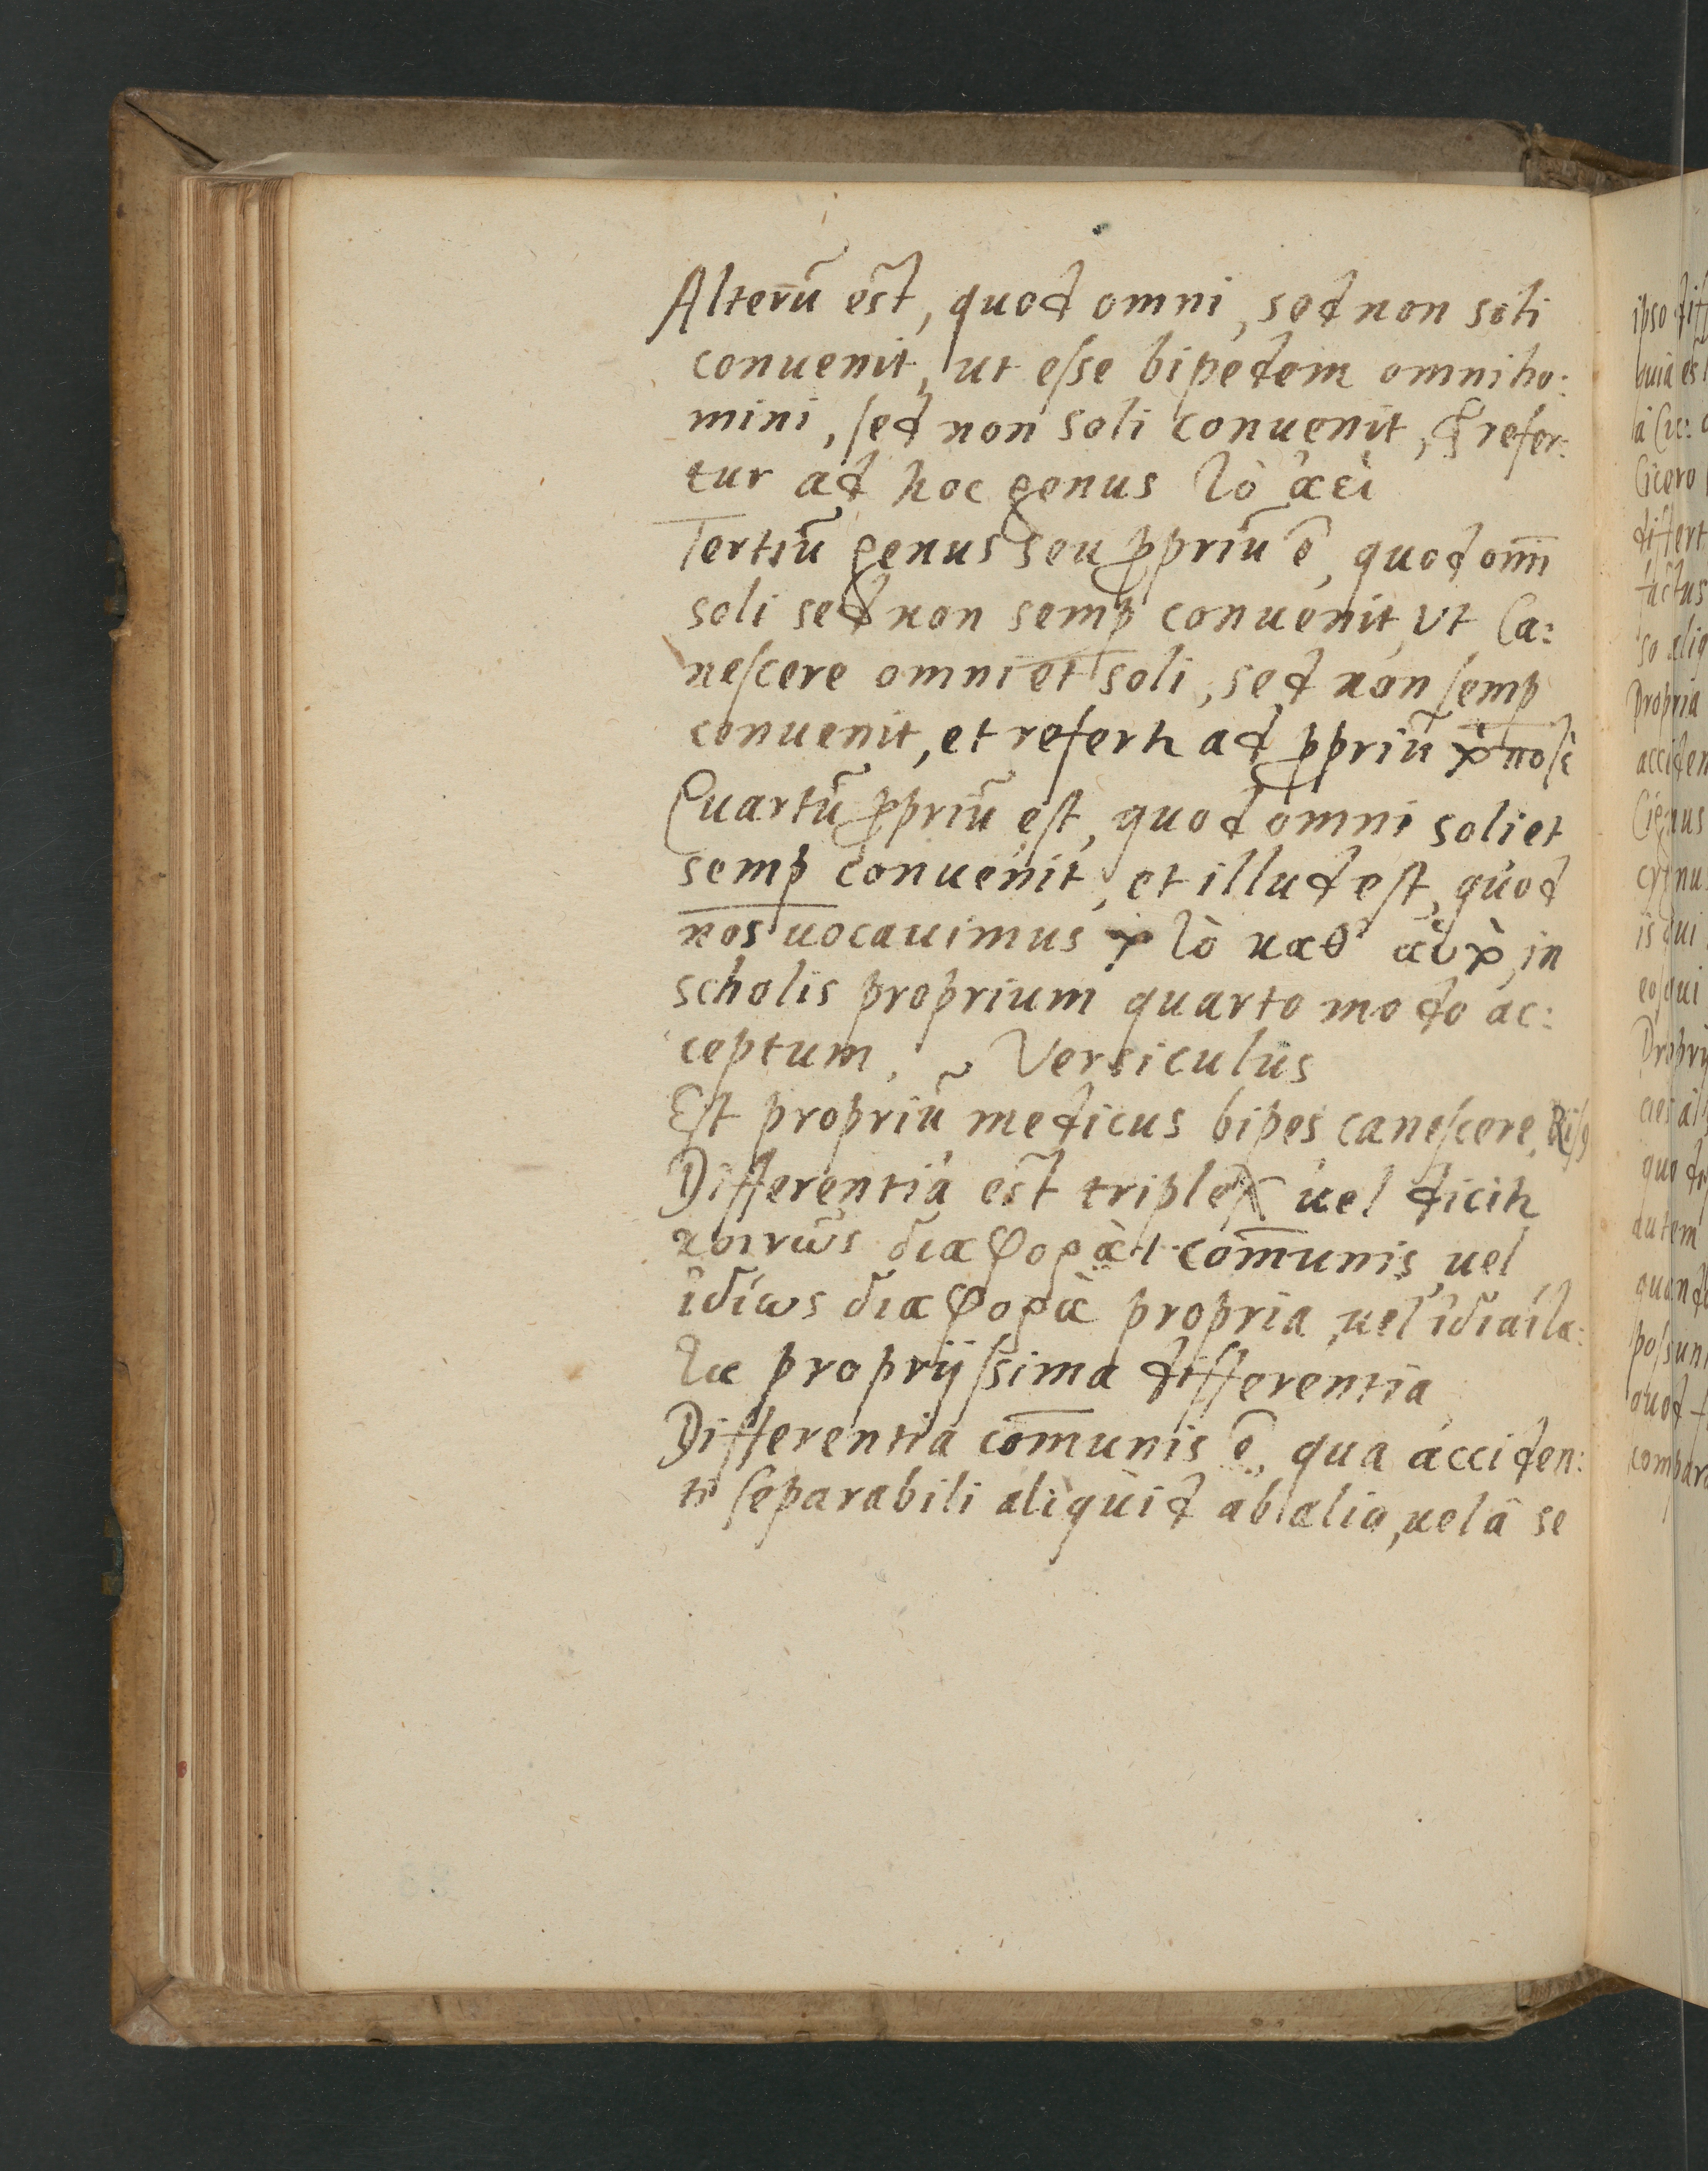 Alterũ est, quod omni, sed non soli
conuenit, ut eſse bipedem omni ho:
mini, ſed non soli conuenit, & refer:
tur ad hoc genus τὸ ἀεὶ
Tertiũ genus seu ꝓpriũ ẽ, quod om̃i
soli sed non semꝑ conuenit, Vt Ca:
neſcere omni et soli, sed non ſemꝑ
conuenit, et refert ad ꝓpriũ
Quartũ ꝓpriũ eſt, quod omni soli et
semꝑ conuenit, et illud eſt, quod
nos uocauimus τὸ καθ' in
scholis proprium quarto modo ac:
ceptum. Versiculus
Eſt propriũ medicus bipes caneſcere,
Differentia est triplex uel dicit
κοινῶς διαφορὰ com̄unis uel
ἰδίως διαφορὰ propria, uel ἰδιαίτα:
τα proprijſsima differentia
Differentia com̄unis ẽ, qua acciden:
ti ſeparabili aliquid ab alio, uel â se
ipso
quia
Cicero
differt
propria
Cignus
is qui
autem
quod